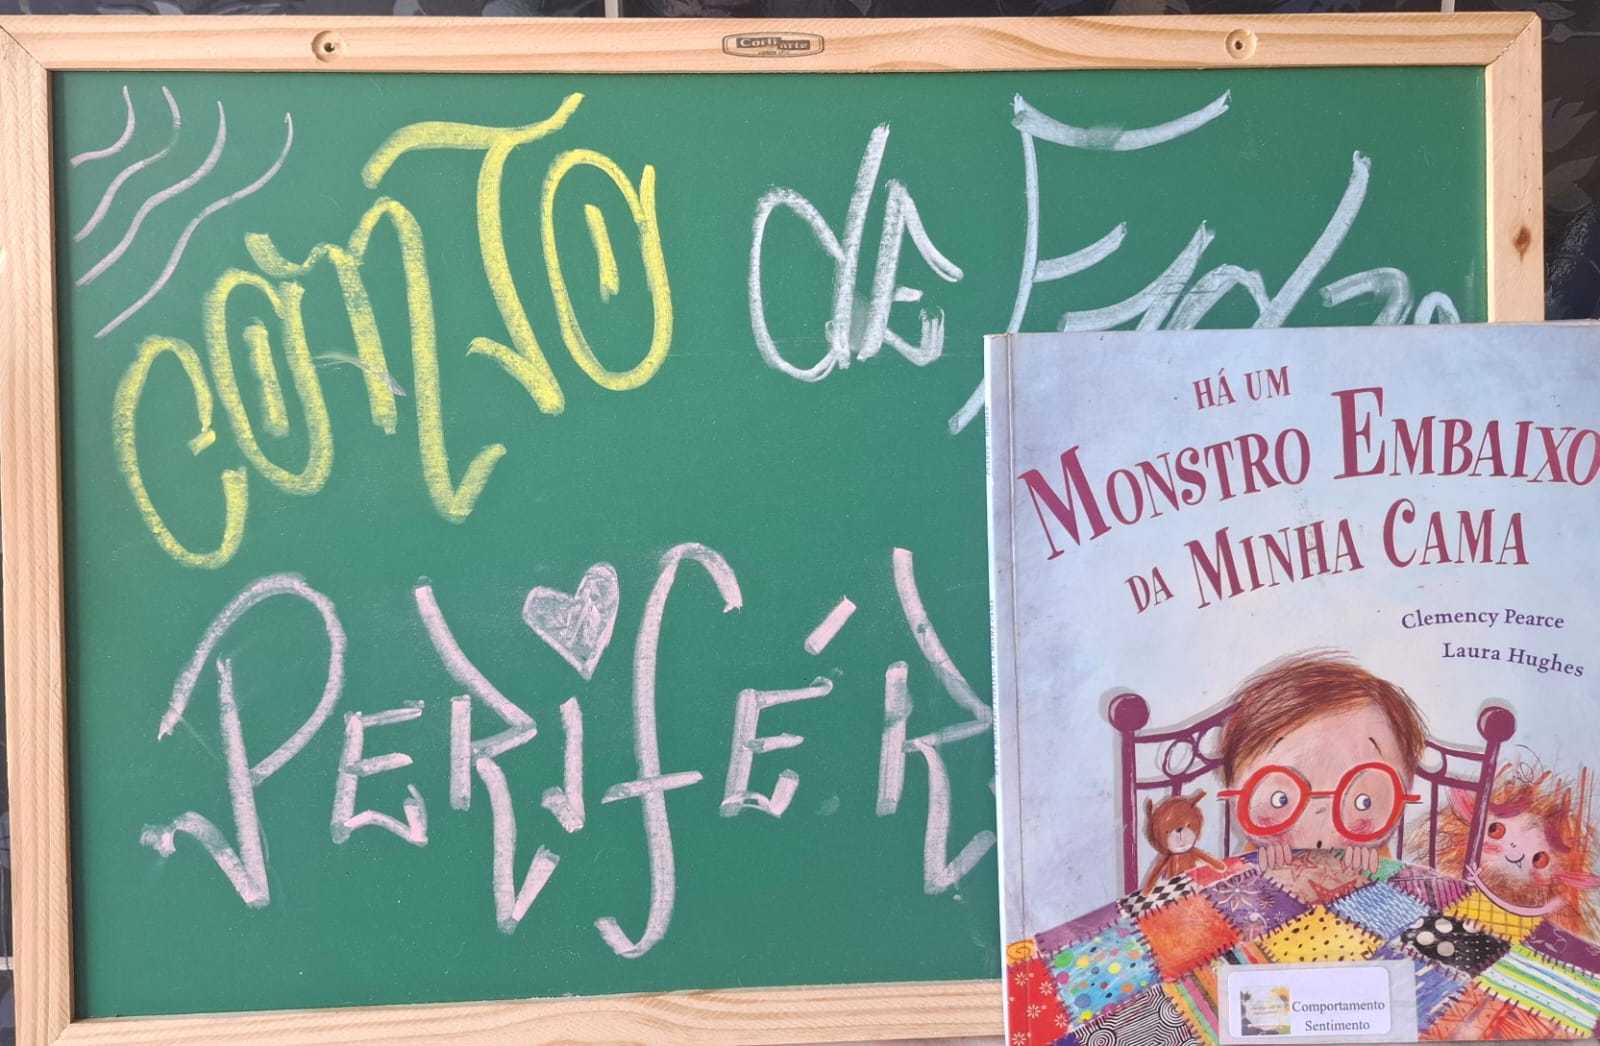 Corti arte
CONTO de
PERIFÉR
HÁ UM
MONSTRO EMBAIXO
DA MINHA CAMA
Clemency Pearce
Laura Hughes
Comportamento
Sentimento